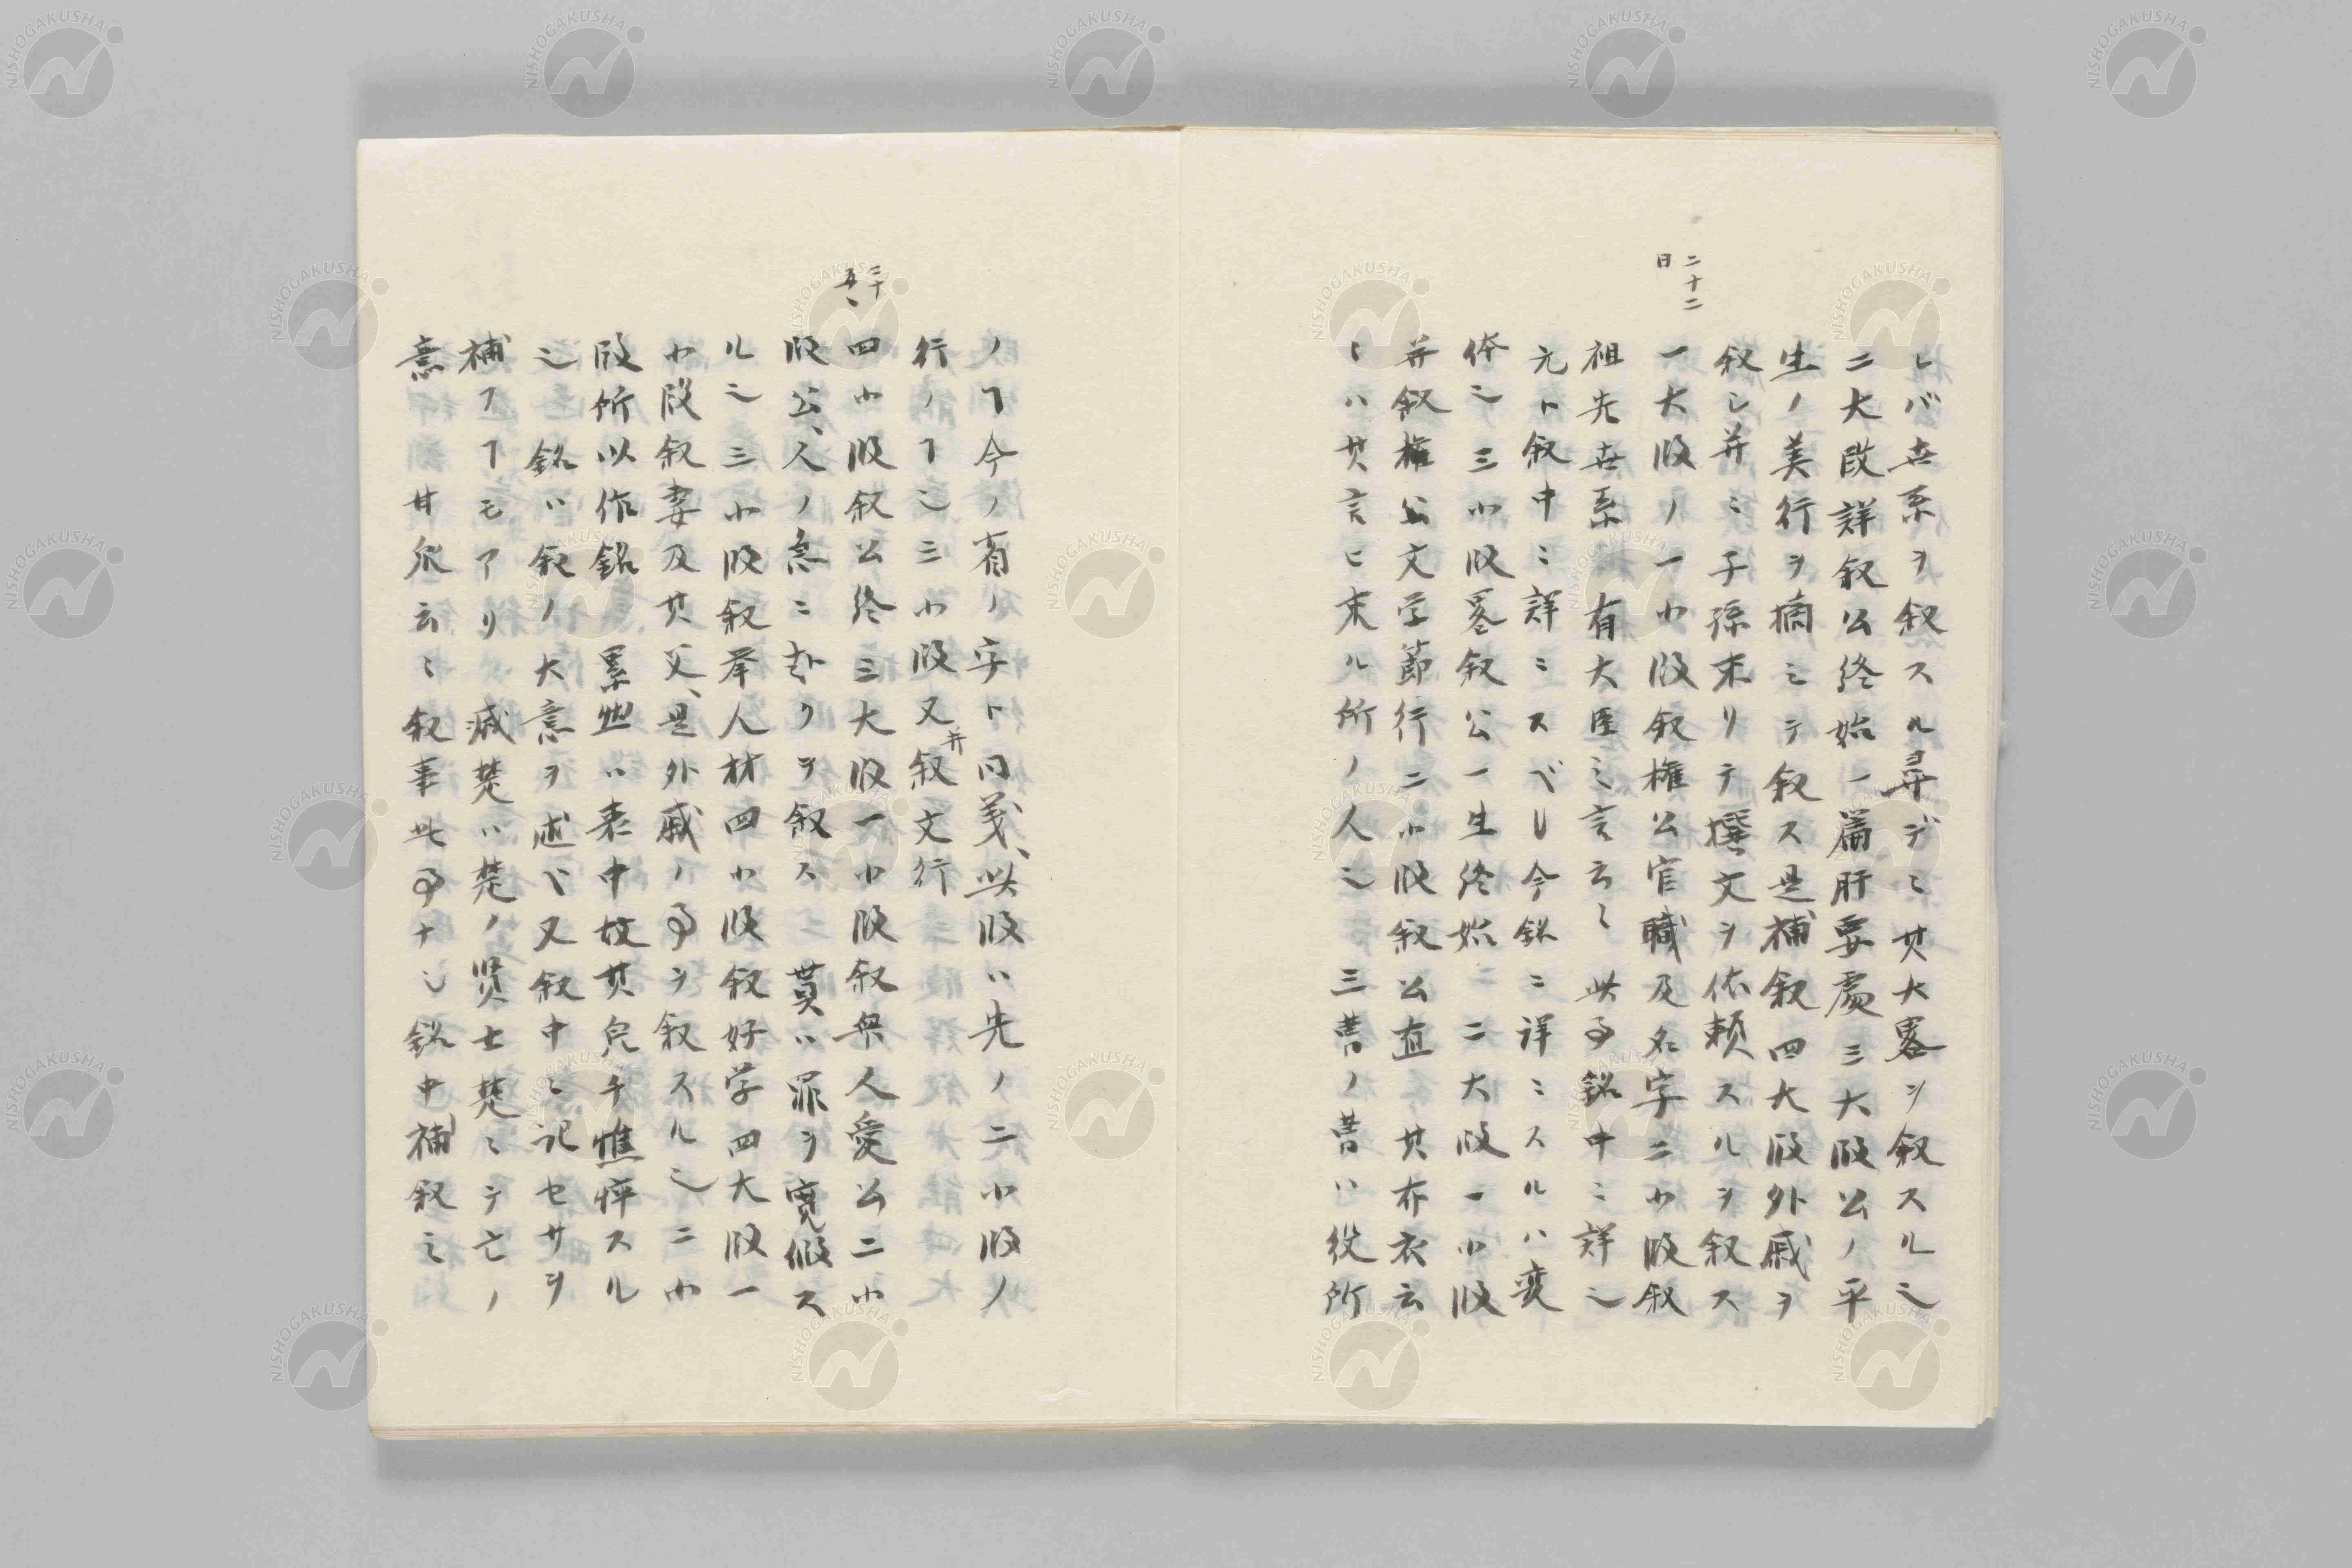 レバ世系ヲ叙スル尋デミ其大畧ヲ叙スル之
二大段詳叙公終始一篇肝要處三大段公ノ平
生ノ美行ヲ摘ミテ叙ス是補叙四大段外戚ヲ
叙シ并ニ子孫来リテ撰文ヲ依頼スルヲ叙ス
二十二
日
一大段ノ一小段叙権公官職及名字二小段叙
祖先世系 有大臣之言云〻 此ヿ銘中ニ詳之
元ト叙中ニ詳ニスベし今銘ニ詳ニスルハ変
体之三小段畧叙公一生終始 二大段一小段
并叙権公文学節行二小段叙公直 其布衣云
〻ハ其言ヒ来ル所ノ人之 三曹ノ曹ハ役所
ノヿ今ノ省ノ字ト同義、此段ハ先ノ二小段ノ
行ノヿ之三小段又并叙文行
三十
五、
四小段叙公終三大段一小段叙無人愛公二小
段公、人ノ急ニ赴クヲ叙ス 貰ハ罪ヲ寛假ス
ル之三小段叙挙人材四小段叙好学四大段一
小段叙妻及其父、是外戚ノヿヲ叙スル之二小
段所以作銘 累然ハ喪中故其皃チ憔悴スル
之 銘ハ叙ノ大意ヲ述べ又叙中ニ記セサヲ
補フヿモアリ 滅楚ハ楚ノ賢士楚ミテ亡ノ
意 甘泉云〻叙事此ヿナシ銘中補叙之